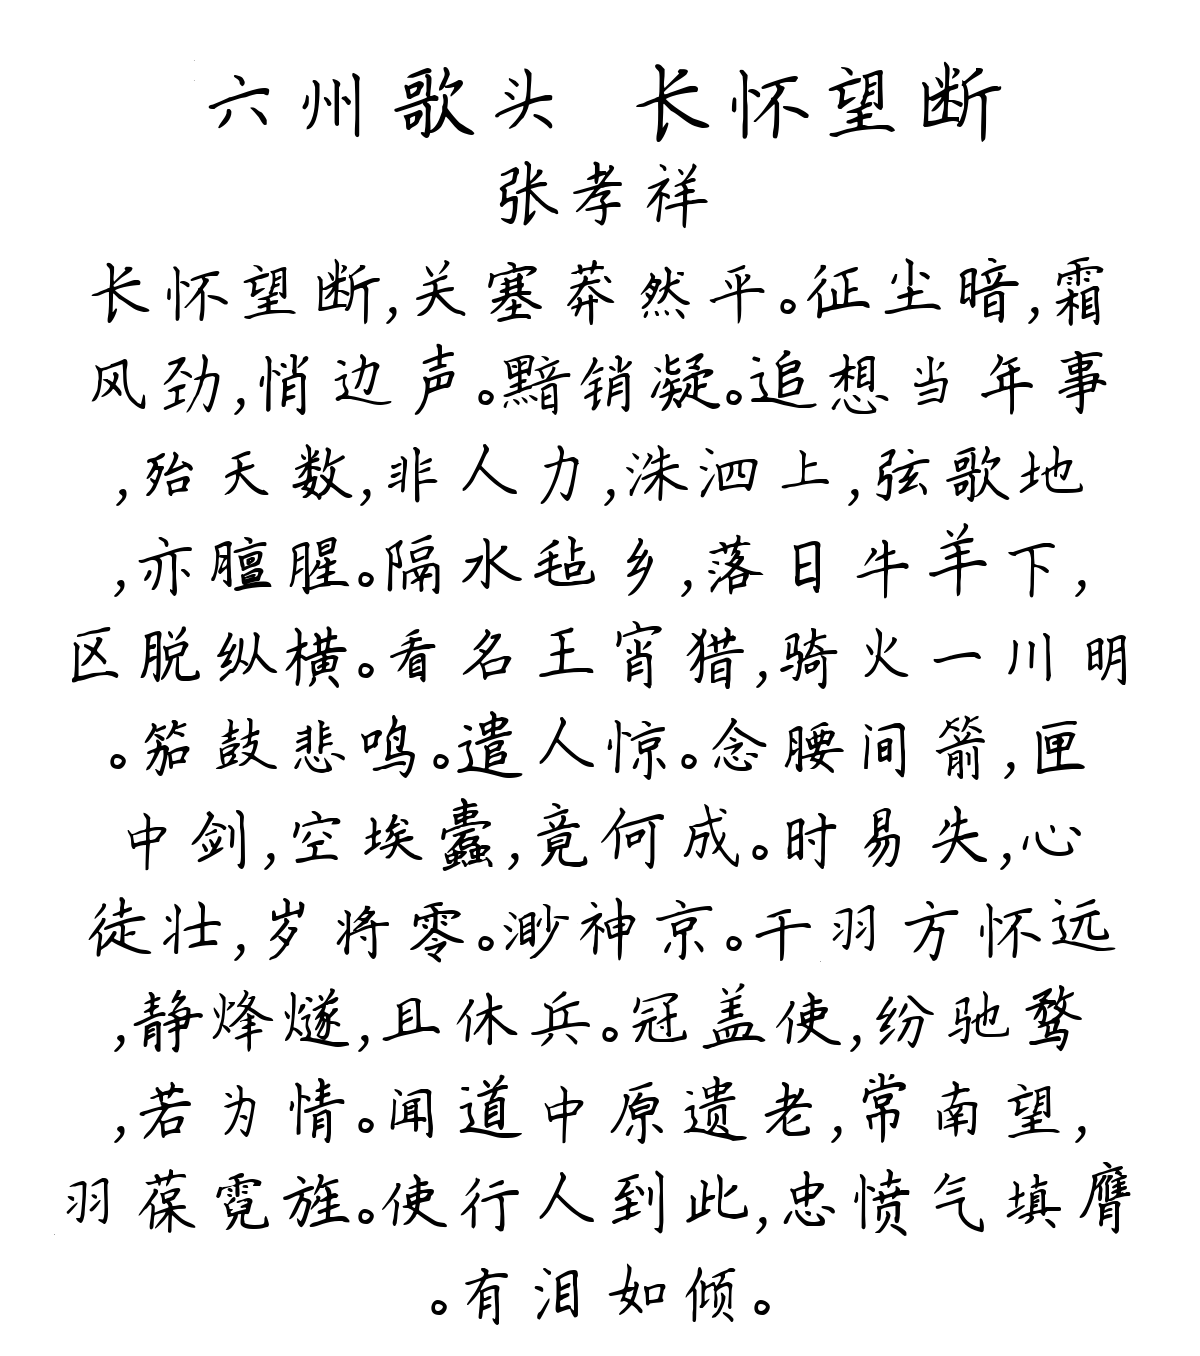 六州歌头 长怀望断
张孝祥
长怀望断,关塞莽然平。征尘暗,霜
风劲,悄边声。黯销凝。追想当年事
,殆天数,非人力,洙泗上,弦歌地
,亦膻腥。隔水毡乡,落日牛羊下,
区脱纵横。看名王宵猎,骑火一川明
。笳鼓悲鸣。遣人惊。念腰间箭,匣
中剑,空埃蠹,竟何成。时易失,心
徒壮,岁将零。渺神京。干羽方怀远
,静烽燧,且休兵。冠盖使,纷驰骛
,若为情。闻道中原遗老,常南望,
羽葆霓旌。使行人到此,忠愤气填膺
。有泪如倾。